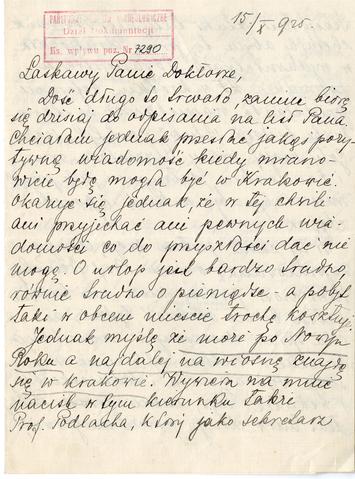 PAŃSTWOWE
Dział Dokumentacji
Ks. wpływu poz. Nr 7290
15/X 925.
Łaskawy Panie Doktorze,
Dość długo to trwało, zanim biorę
się dzisiaj do odpisania na list Pana
chciałam jednak przesłać jakąś pozy-
tywną wiadomość kiedy miano-
wicie będę mogła być w Krakowie.
Okazuje się jednak, że w tej chwili
ani przyjechać ani pewnych wia-
domości co do przyszłości dać nie
mogę. O urlop jest bardzo trudno,
równie trudno o pieniądze - a pobyt
taki w obcem mieście trochę kosztuje.
Jednak myślę że może po Nowym
Roku a najdalej na wiosnę znajdę
się w Krakowie. Wywiera na mnie
nacisk w tym kierunku także
Prof. Podlacha, który jako sekretarz